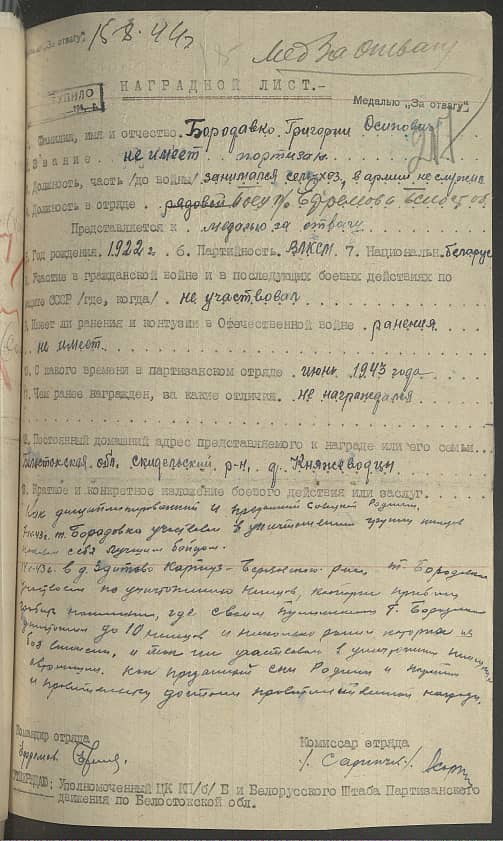 медалью "За отвагу"
15.8.44г
Мед За отвагу
НАГРАДНОЙ ЛИСТ.-
Медалью „За отвагу"
Фамилия, имя и отчество. Бородавко Григорий Осипович
Звание. не имеет партизан
Должность, часть /до войны/ занимался сель.хоз, в армии не служил
Должность в отряде. рядовой боец п/о Ефремова
Представляется к. медалью за отвагу
5. Год рождения. 1922 г. 6. Партийность. ВЛКСМ. 7. Национальн. беларус
Участие в гражданской войне и в последующих боевых действиях по
защите СССР /где, когда/. не участвовал
9. Имеет ли ранения и контузии в Отечественной войне. ранения
не имеет.
10. С какого времени в партизанском отряде. июнь 1943 года
11. Чем ранее награжден, за какие отличия. не награждался
12. Постоянный домашний адрес представляемого к награде или его семьи
Белостокская обл. Скидельский р-н. д. Княжеводцы
13. Краткое и конкретное изложение боевого действия или заслуг.
Как дисциплинированный и преданный Советской Родине,
т. Бородовко участвовал в уничтожении группы немцев
показал себя лучшим бойцом.
43г. в д. Здитово Картуз-Березского р-на, т. Бородавко
участвовал по уничтожению немцев, которые прибыли
где своим пулеметом т. Бородавко
уничтожил до 10 немцев и несколько ранил
и так же участвовал в уничтожении
Как преданный сын Родины и партии
и правительству достоин правительственной награды.
Командир отряда
Ефремов
Комиссар отряда
/Саричев/
УТВЕРЖДАЮ: Уполномоченный ЦК КП/б/ Б и Белорусского Штаба Партизанского
движения по Белостокской обл.